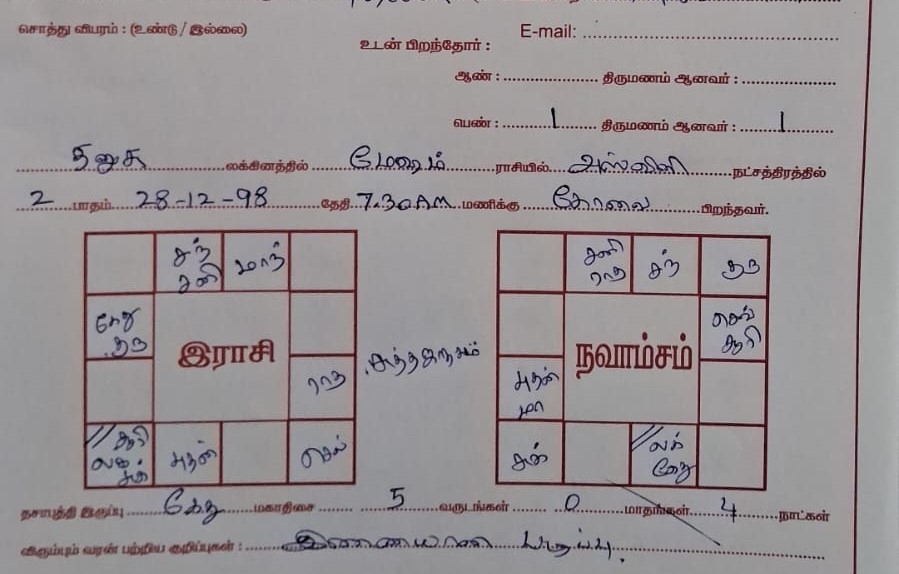 சொத்து விபரம் : (உண்டு / இல்லை)
E-mail:
உடன் பிறந்தோர் :
ஆண் : திருமணம் ஆனவர் :
பெண் : 1 திருமணம் ஆனவர் : 1
தனுசு லக்கினத்தில் மேஷம் ராசியில் அஸ்வினி நட்சத்திரத்தில்
2 பாதம் 28-12-98 தேதி 7.30AM மணிக்கு கோவை பிறந்தவர்.
சந் மாந்
சனி
கேது
குரு
இராசி
ராகு
சூரி
லக்
சுக்
புதன்
செவ்
சனி சந் குரு
ராகு
செவ்
சூரி
நவாம்சம்
புதன்
மா
சுக்
லக்
கேது
தசாபுத்தி இருப்பு கேது மகாதிசை 5 வருடங்கள் 0 மாதங்கள் 4 நாட்கள்
விரும்பும் வரன் பற்றிய குறிப்புகள் : இணையான படிப்பு.